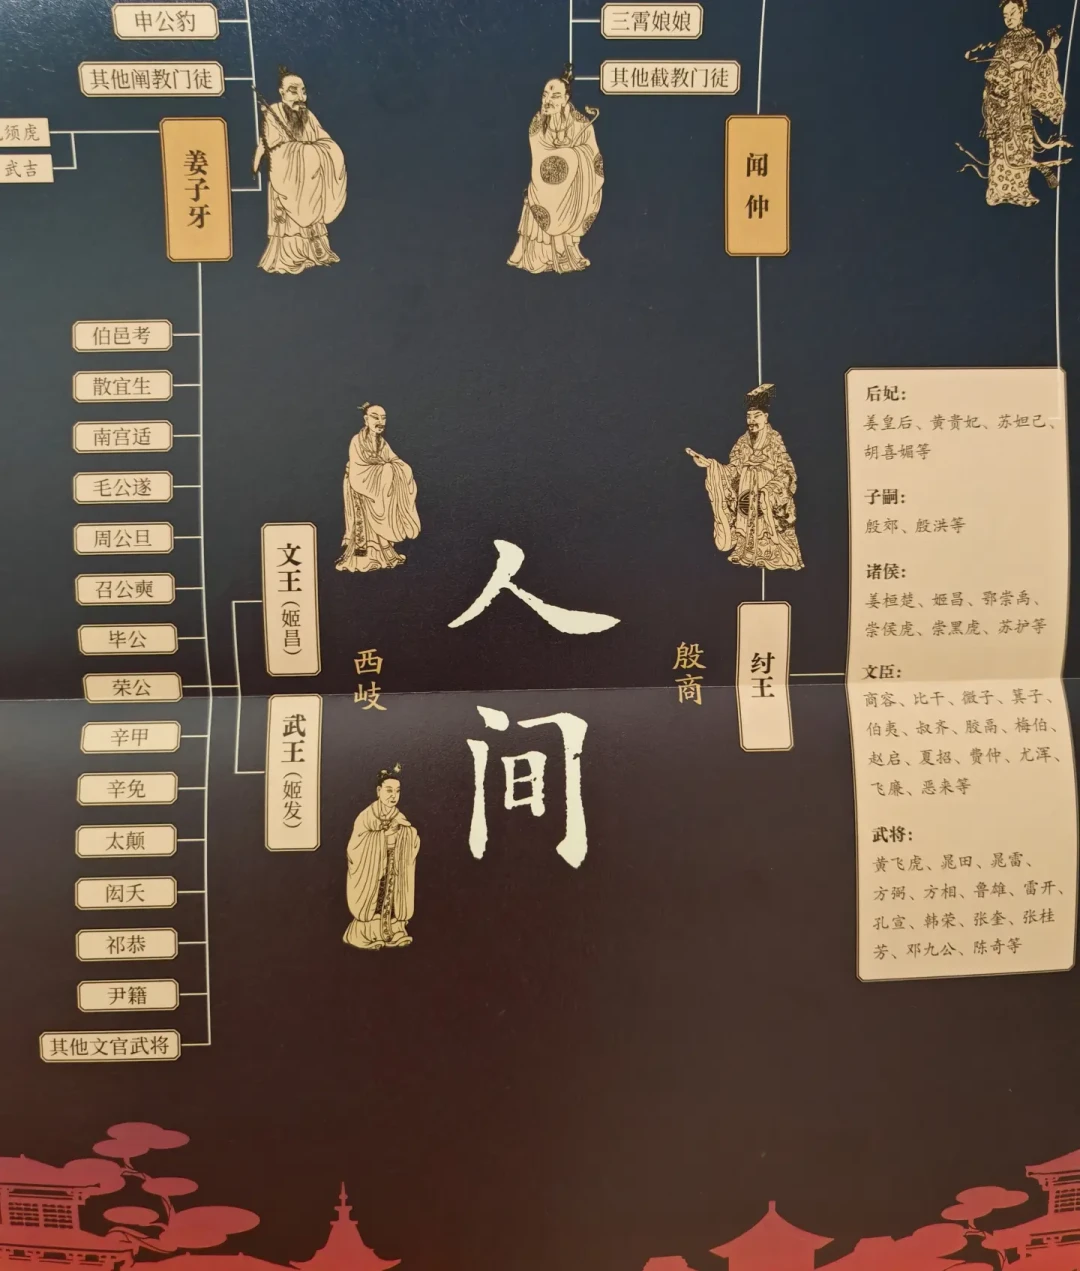 申公豹
三霄娘娘
其他阐教门徒
其他截教门徒
须虎
武吉
姜子牙
闻仲
伯邑考
散宜生
南宫适
毛公遂
周公旦
召公奭
毕公
荣公
辛甲
辛免
太颠
闳夭
祁恭
尹籍
其他文官武将
文王（姬昌）
武王（姬发）
西岐
人间
殷商
纣王
后妃：
姜皇后、黄贵妃、苏妲己、
胡喜媚等
子嗣：
殷郊、殷洪等
诸侯：
姜桓楚、姬昌、鄂崇禹、
崇侯虎、崇黑虎、苏护等
文臣：
商容、比干、微子、箕子、
伯夷、叔齐、胶鬲、梅伯、
赵启、夏招、费仲、尤浑、
飞廉、恶来等
武将：
黄飞虎、晁田、晁雷、
方弼、方相、鲁雄、雷开、
孔宣、韩荣、张奎、张桂
芳、邓九公、陈奇等